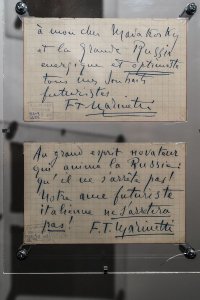 à mon cher Maïakovsky
et la Grande Russie
énergique et optimiste
tous mes souhaits
futuristes
F. T. Marinetti
Au grand esprit novateur
qui anime la Russie:
qu'il ne s'arrête pas!
Notre âme futuriste
italienne ne s'arrêtera
pas! F. T. Marinetti